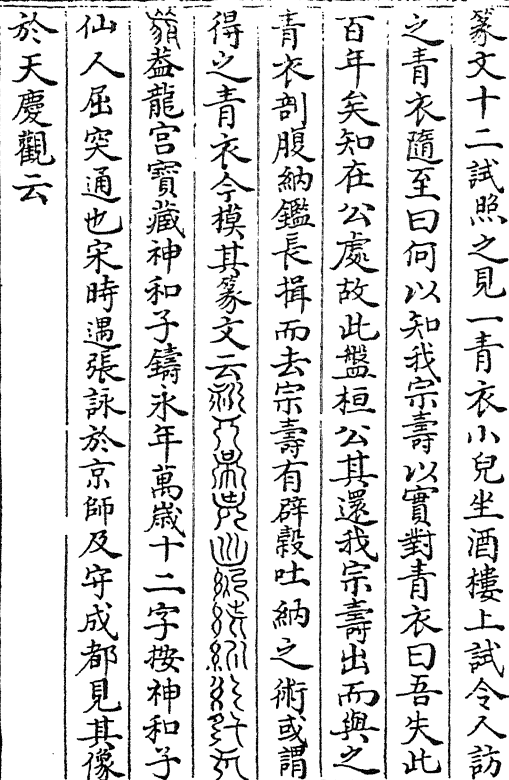 篆文十二試照之見一青衣小兒坐酒樓上試令人訪
之青衣隨至曰何以知我宗壽以實對青衣曰吾失此
百年矣知在公處故此盤桓公其還我宗壽出而與之
青衣剖腹納鑑長揖而去宗壽有辟穀吐納之術或謂
得之青衣今模其篆文云
益龍宫寶藏神和子鑄永年萬歲十二字按神和子
仙人屈突通也宋時遇張詠於京師及守成都見其像
於天慶觀云